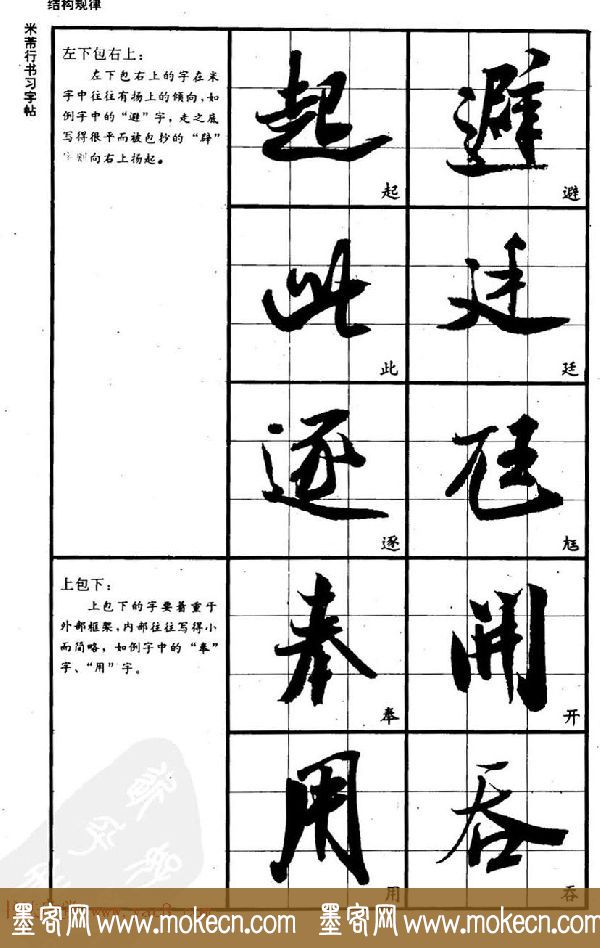 结构规律
米芾行书习字帖
左下包右上：
左下包右上的字在米
字中往往有扬上的倾向，如
例字中的“避”字，走之底
写得很平而被包抄的“辟”
字则向右上扬起。
起
起
避
避
此
此
廷
廷
逐
逐
尪
上包下：
上包下的字要着重于
外部框架，内部往往写得小
而简略，如例字中的“奉”
字、“用”字。
奉
奉
開
开
用
用
吞
吞
墨客网 www.mokecn.com 墨客网 www.mokecn.com